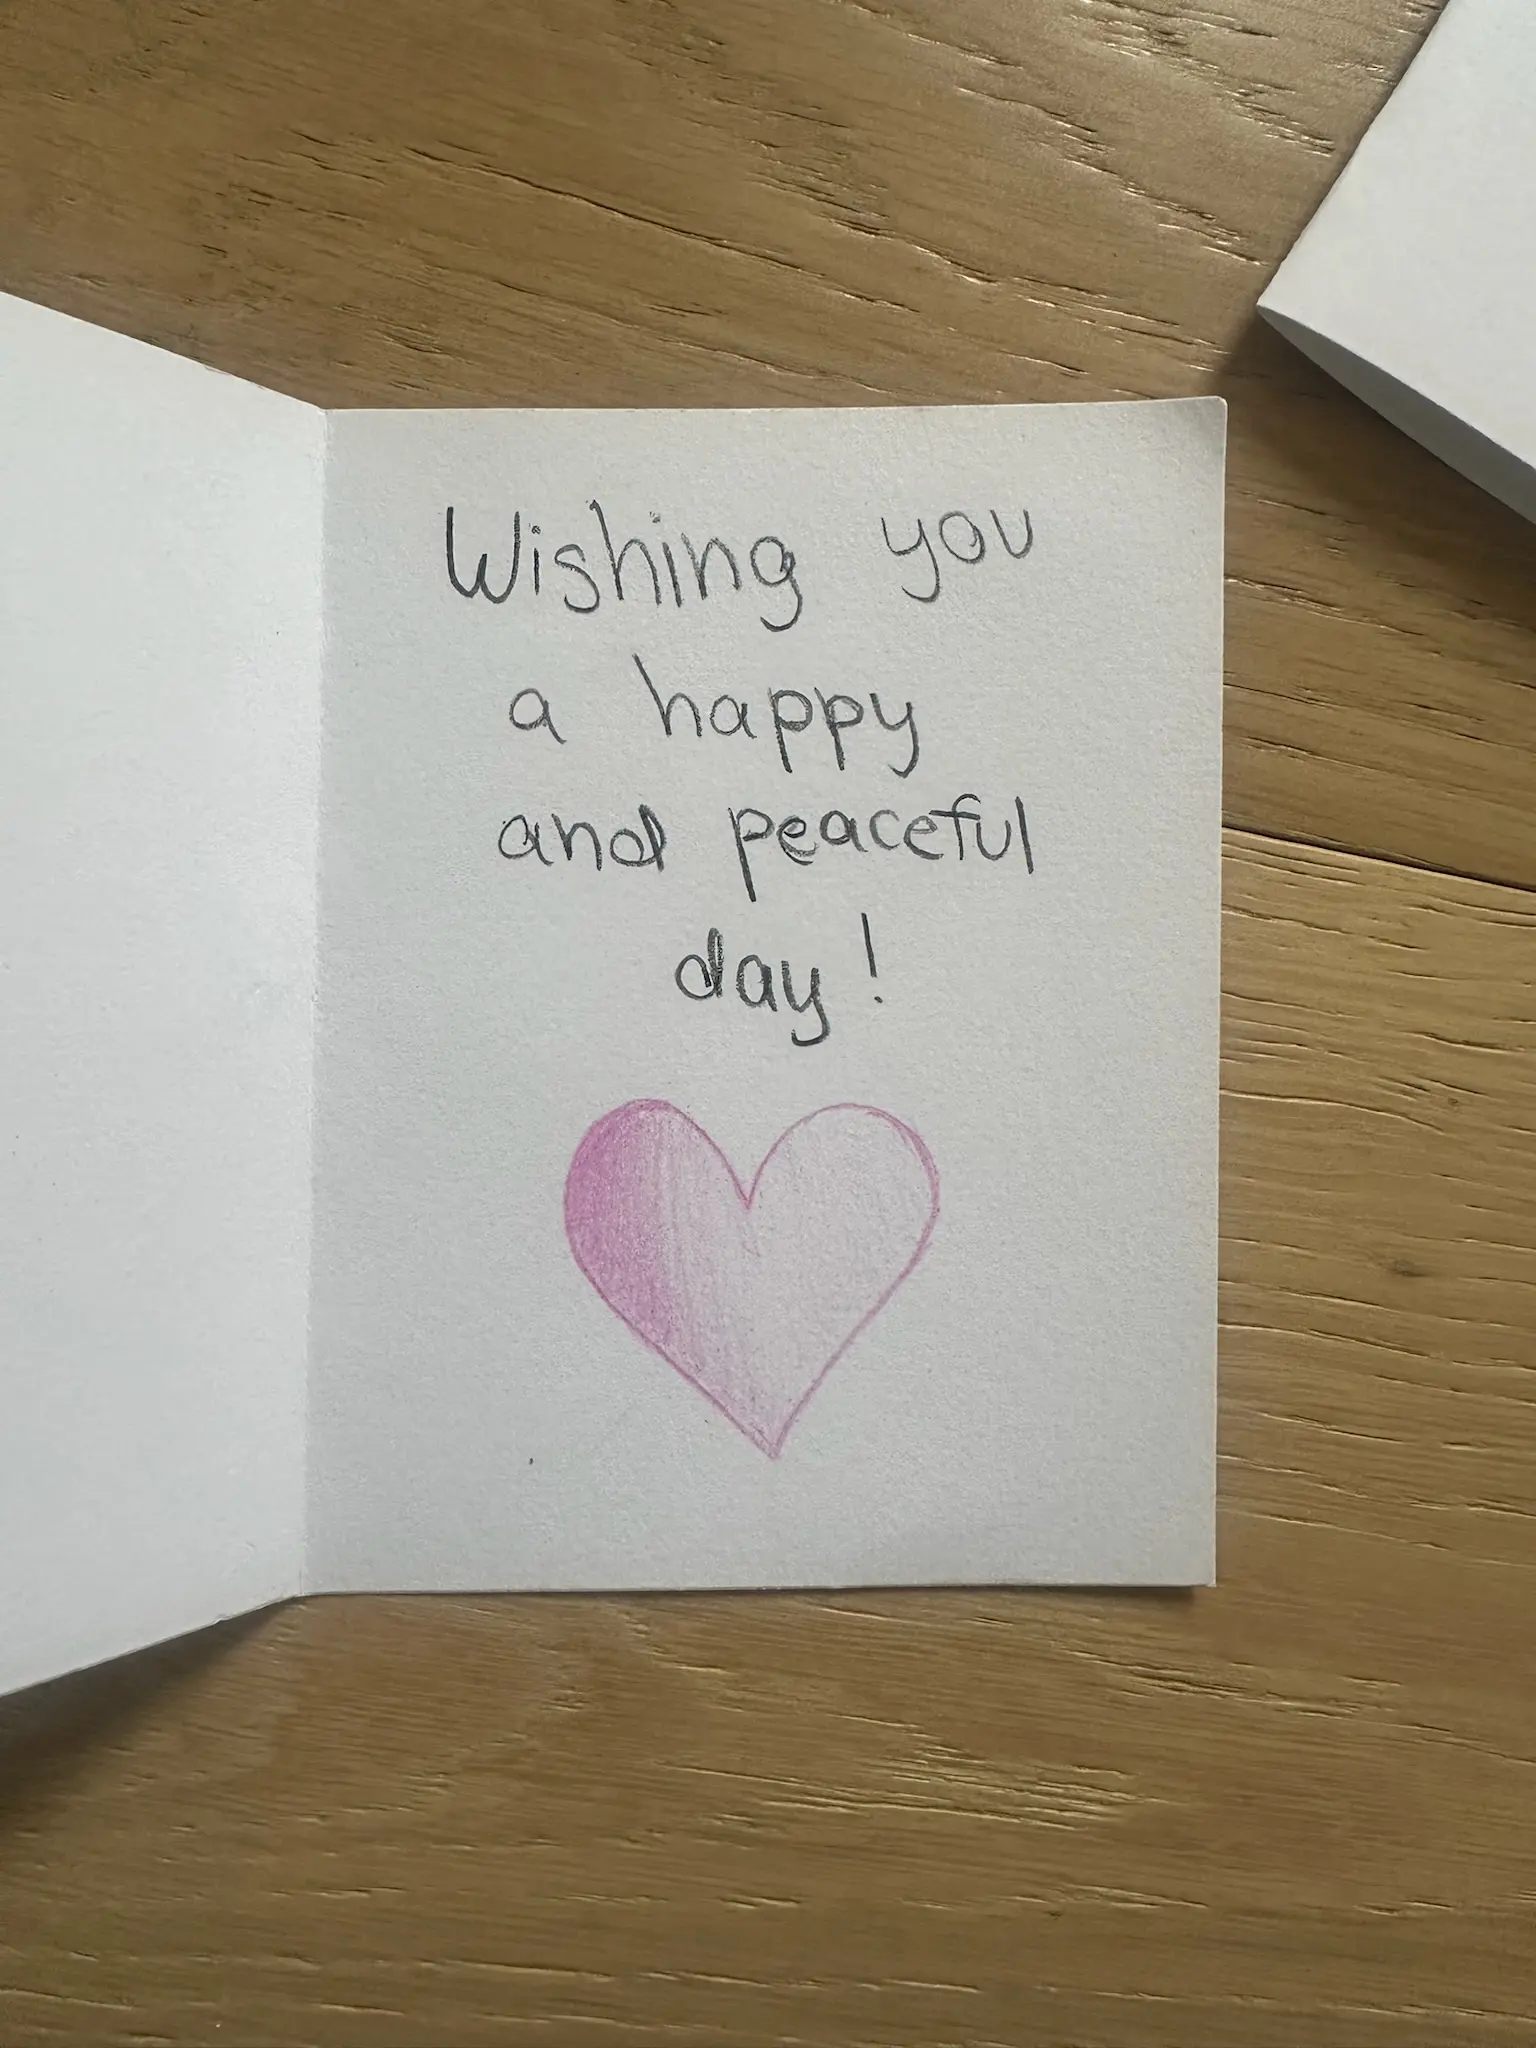 Wishing you
a happy
and peaceful
day!